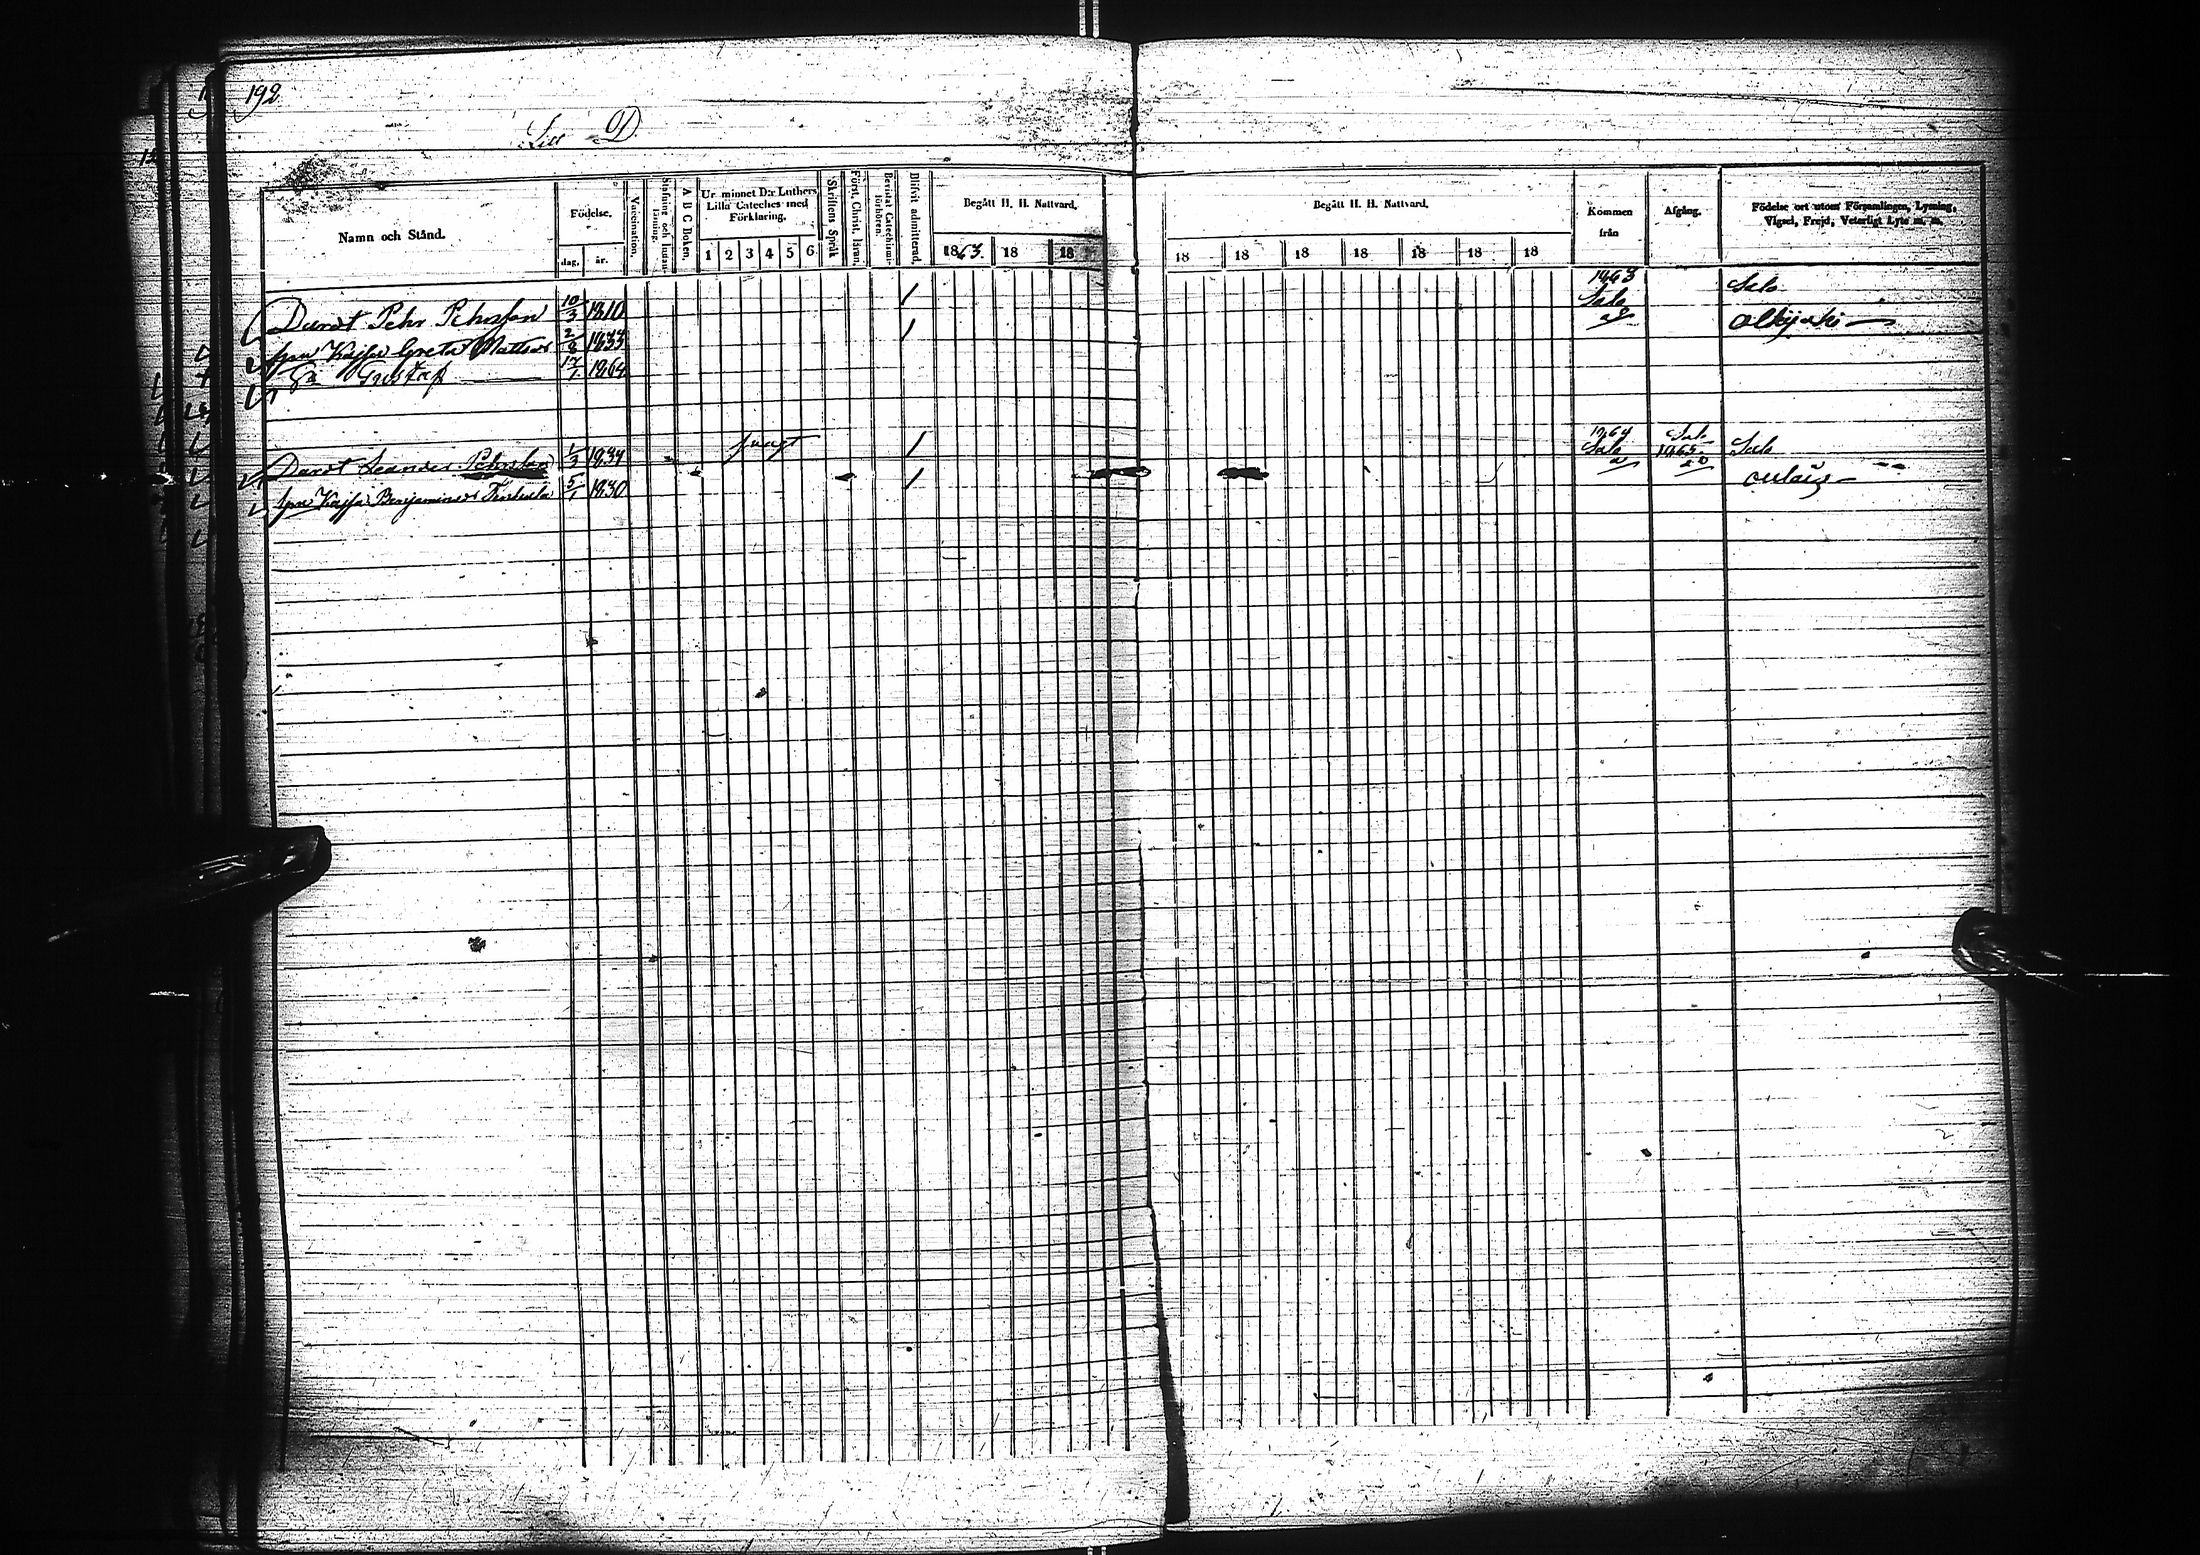 192
Litt D
Namn och Stånd.
Födelse.
dag. år.
Vaccination.
Stafning och Innanläsning.
A B C Boken.
Ur minnet D:r Luthers Lilla Cateches med Förklaring.
1 2 3 4 5 6
Skriftens Språk
Först. Christ. Läran.
Bevistat Catechismiförhören.
Blifvit admitterad.
Begått H. H. Nattvard.
1863. 18 18
Begått H. H. Nattvard.
18 18 18 18 18 18 18
Kommen från
Afgång.
Födelse ort utom Församlingen, Lysning, Vigsel, Frejd, Veterligt Lyte m. m.
Pehr Pehrsson 10/3 1810 1863 Salo Salo
Kajsa Greta Mattsdr 2/8 1833
Gustaf 17/1 1864
Leander Pehrsson 1/3 1834 svagt 1864 Salo Salo 1865 Salo
Kajsa Benjaminsdr 5/1 1830